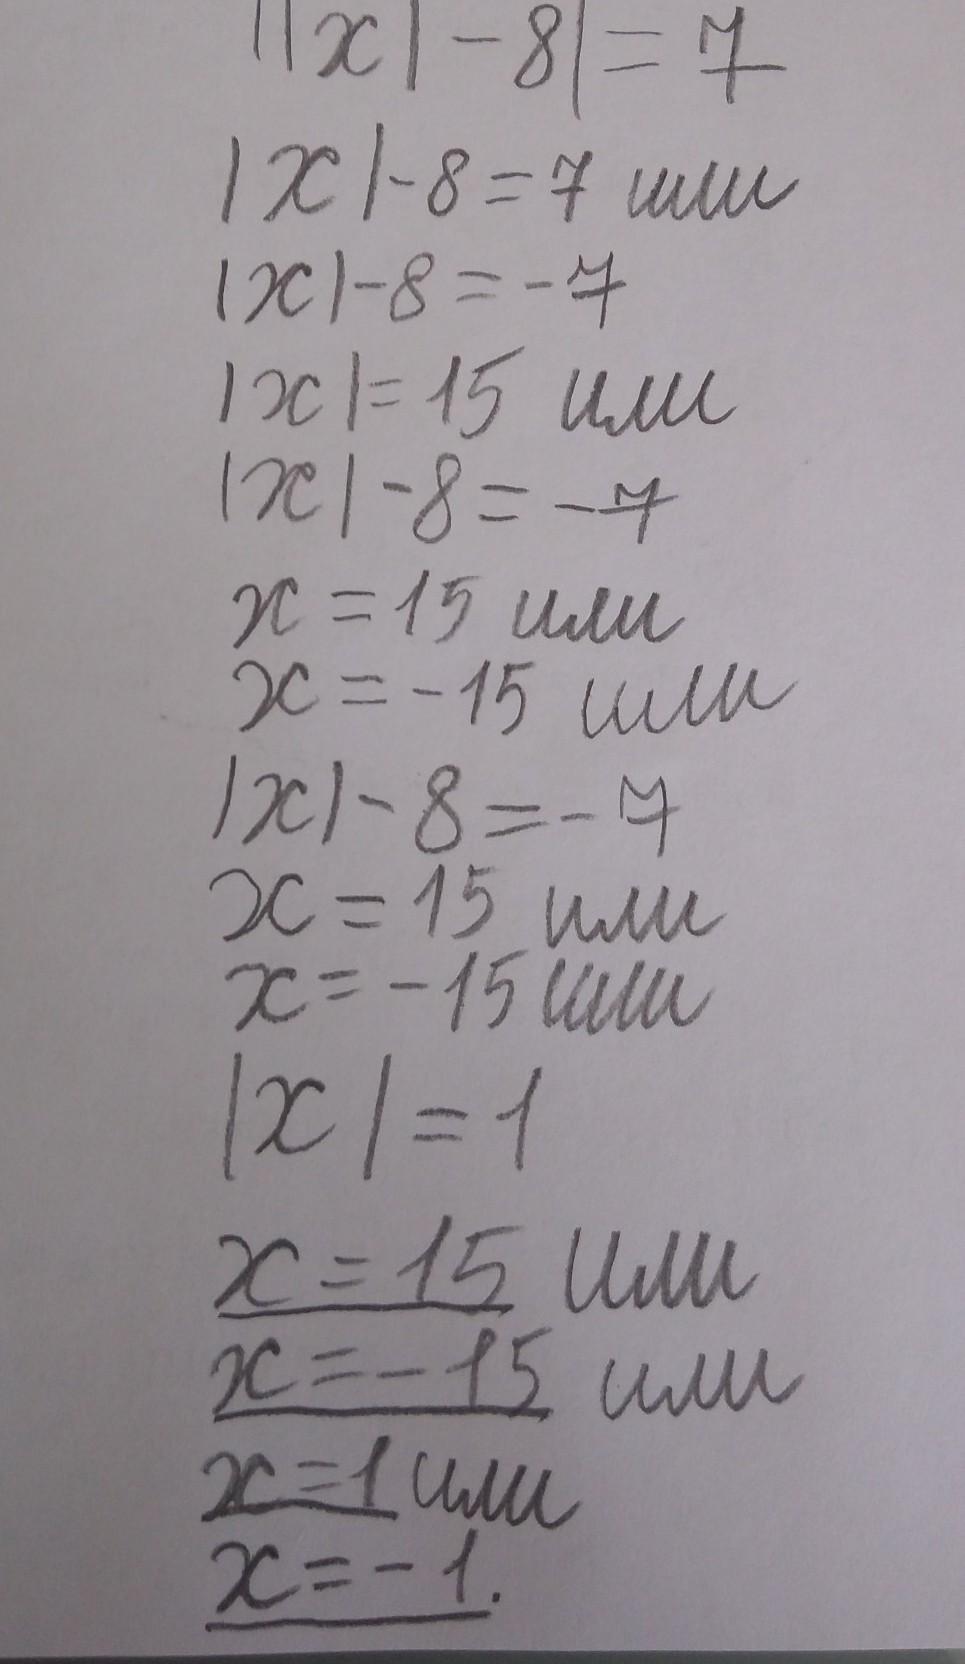 ||x|-8|=7
|x|-8=7 или
|x|-8=-7
|x|=15 или
|x|-8=-7
x=15 или
x=-15 или
|x|-8=-7
x=15 или
x=-15 или
|x|=1
x=15 или
x=-15 или
x=1 или
x=-1.